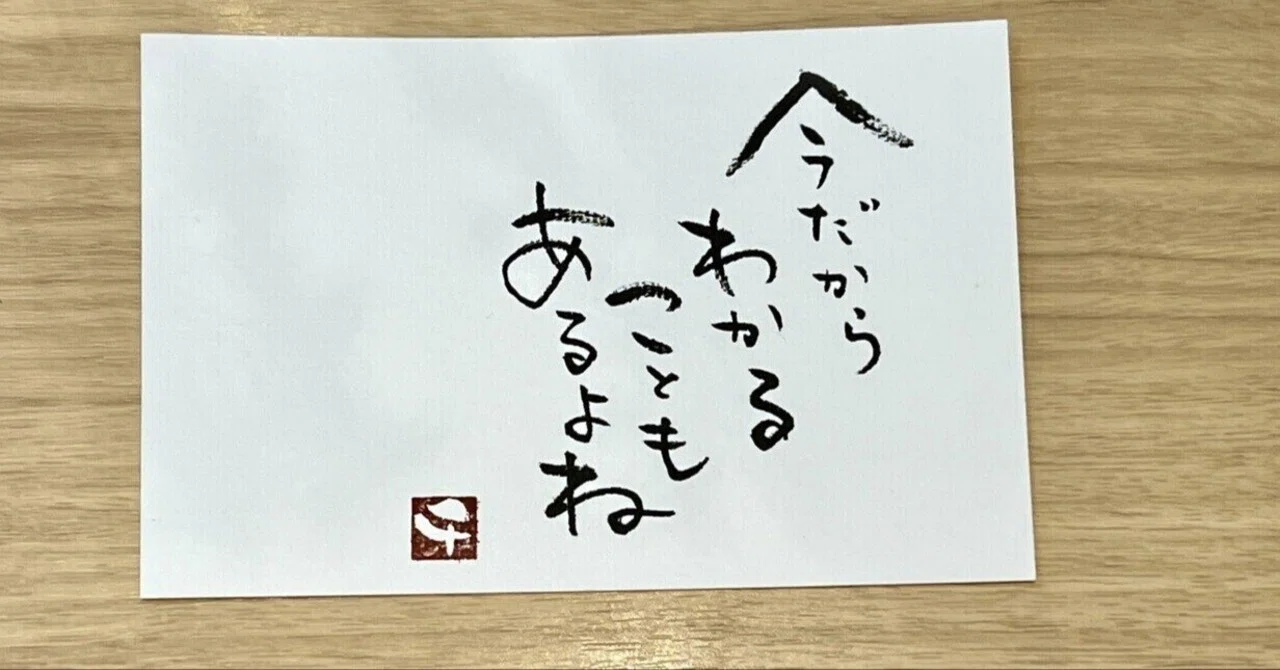 今だから
わかる
ことも
あるよね